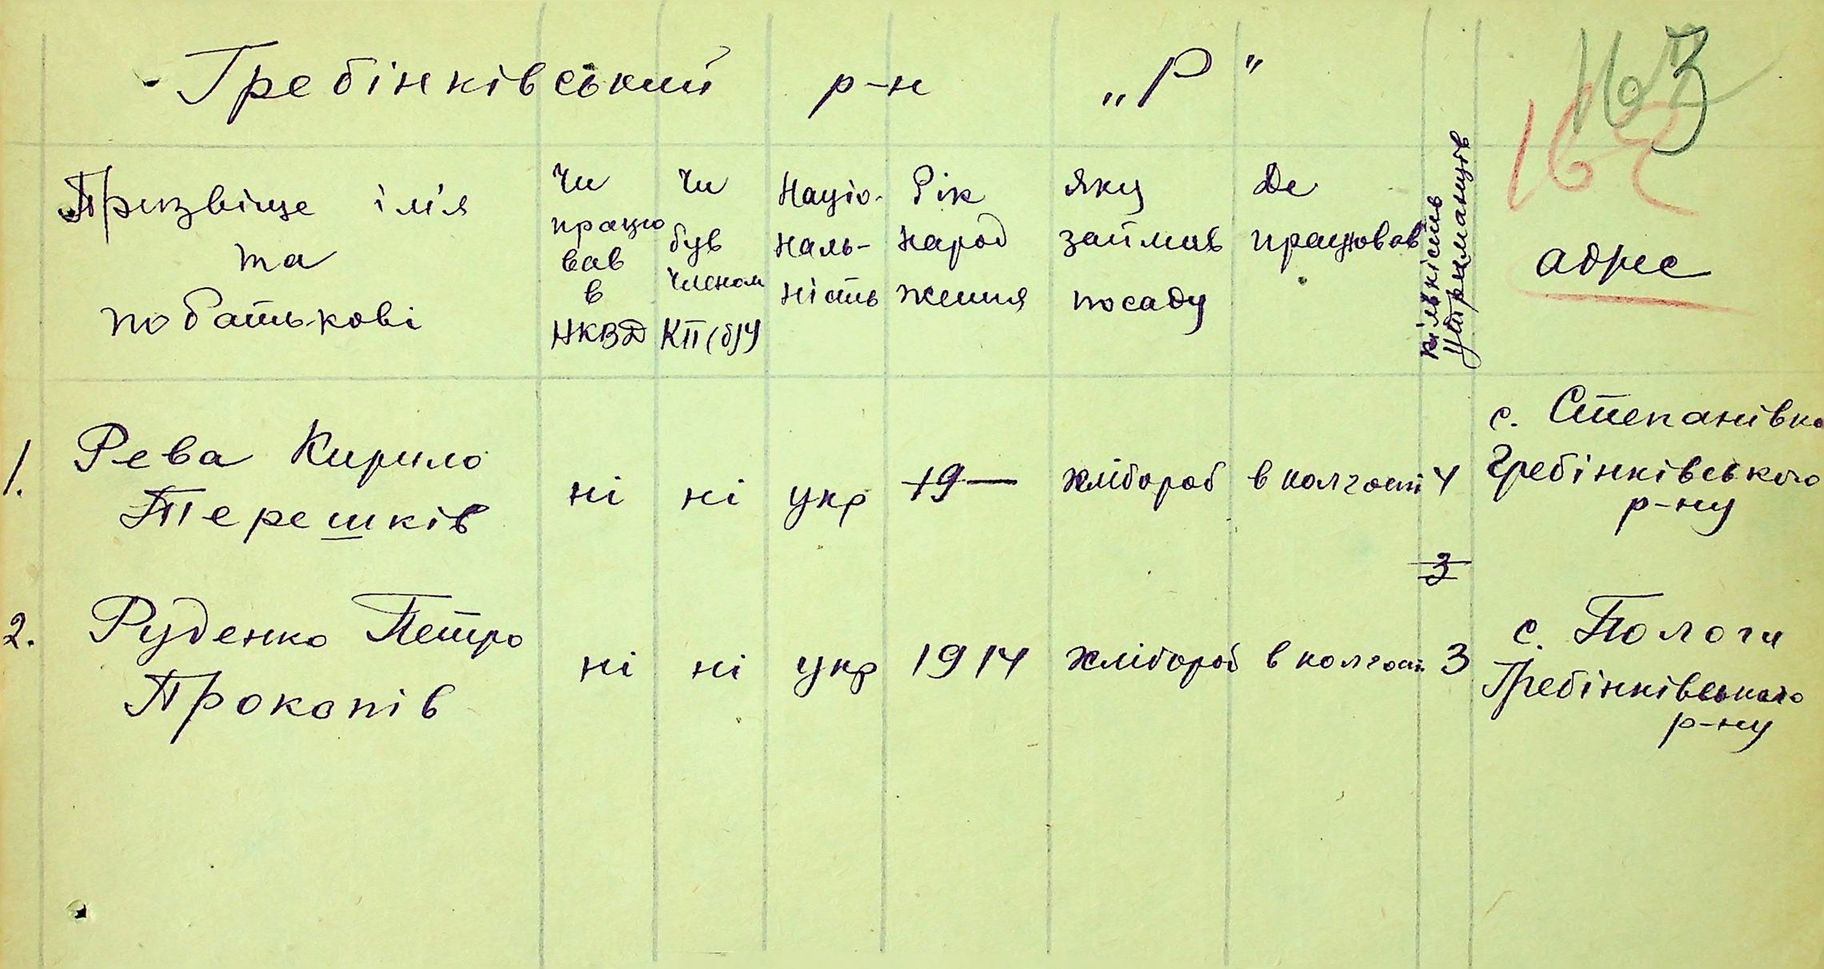 Гребінківський р-н „Р"
163
162
Призвіще ім'я
та
по батькові
Чи
працю
вав
в
НКВД
Чи
був
членом
КП(б)У
Націо-
наль-
ність
Рік
народ
ження
яку
займав
посаду
Де
працював
кількість
утриманців
адрес
1. Рева Кирило
Терешків
ні ні укр 19— хлібороб в колгоспі 4
с. Степанівка
Гребінківського
р-ну
3
2. Руденко Петро
Прокопів
ні ні укр 1914 хлібороб в колгосп. 3
с. Пологи
Гребінківського
р-ну